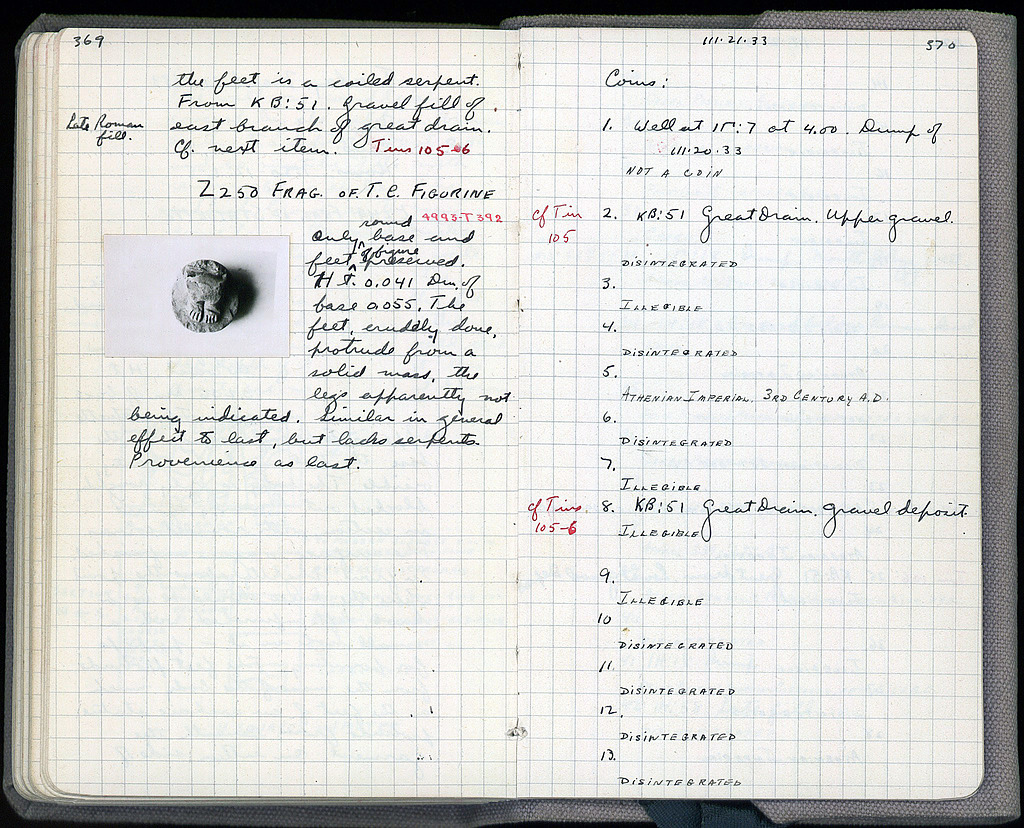 369
the feet is a coiled serpent.
From KB:51. Gravel fill of
Late Roman fill.
east branch of great drain.
Cf. next item. Tins 105-6
Z 250 FRAG. OF T.C. FIGURINE
4993-T 392
only round base and
feet of figure preserved.
Ht. 0.041 Dm. of
base 0.055. The
feet, cruddly done,
protrude from a
solid mass, the
legs apparently not
being indicated. Similar in general
effect to last, but lacks serpents.
Provenience as last.
111.21.33
370
Coins:
1. Well at :7 at 4.00. Dump of
111.20.33
NOT A COIN
cf Tin 105
2. KB:51 Great Drain. Upper gravel.
DISINTEGRATED
3.
ILLEGIBLE
4.
DISINTEGRATED
5.
ATHENIAN IMPERIAL, 3RD CENTURY A.D.
6.
DISINTEGRATED
7.
ILLEGIBLE
cf Tins. 105-6
8. KB:51 Great Drain. gravel deposit.
ILLEGIBLE
9.
ILLEGIBLE
10
DISINTEGRATED
11.
DISINTEGRATED
12.
DISINTEGRATED
13.
DISINTEGRATED